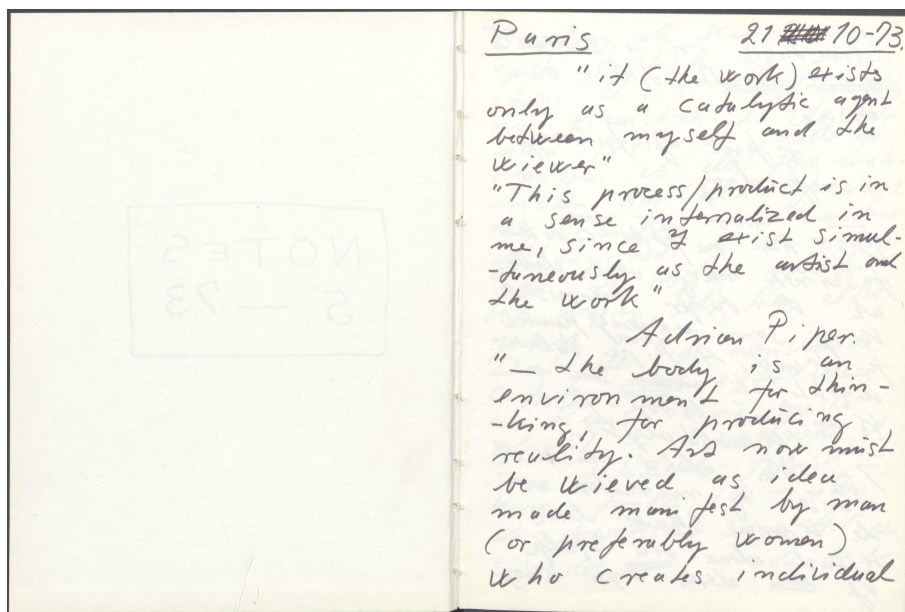 NOTES
5 — 73
Paris 21 10-73.
"it (the work) exists
only as a catalytic agent
between myself and the
wiewer"
"This process/product is in
a sense internalized in
me, since I exist simul-
-taneously as the artist and
the work"
Adrian Piper.
"— the body is an
environment for thin-
-king, for producing
reality. Art now must
be wieved as idea
made manifest by man
(or preferably women)
who creates individual